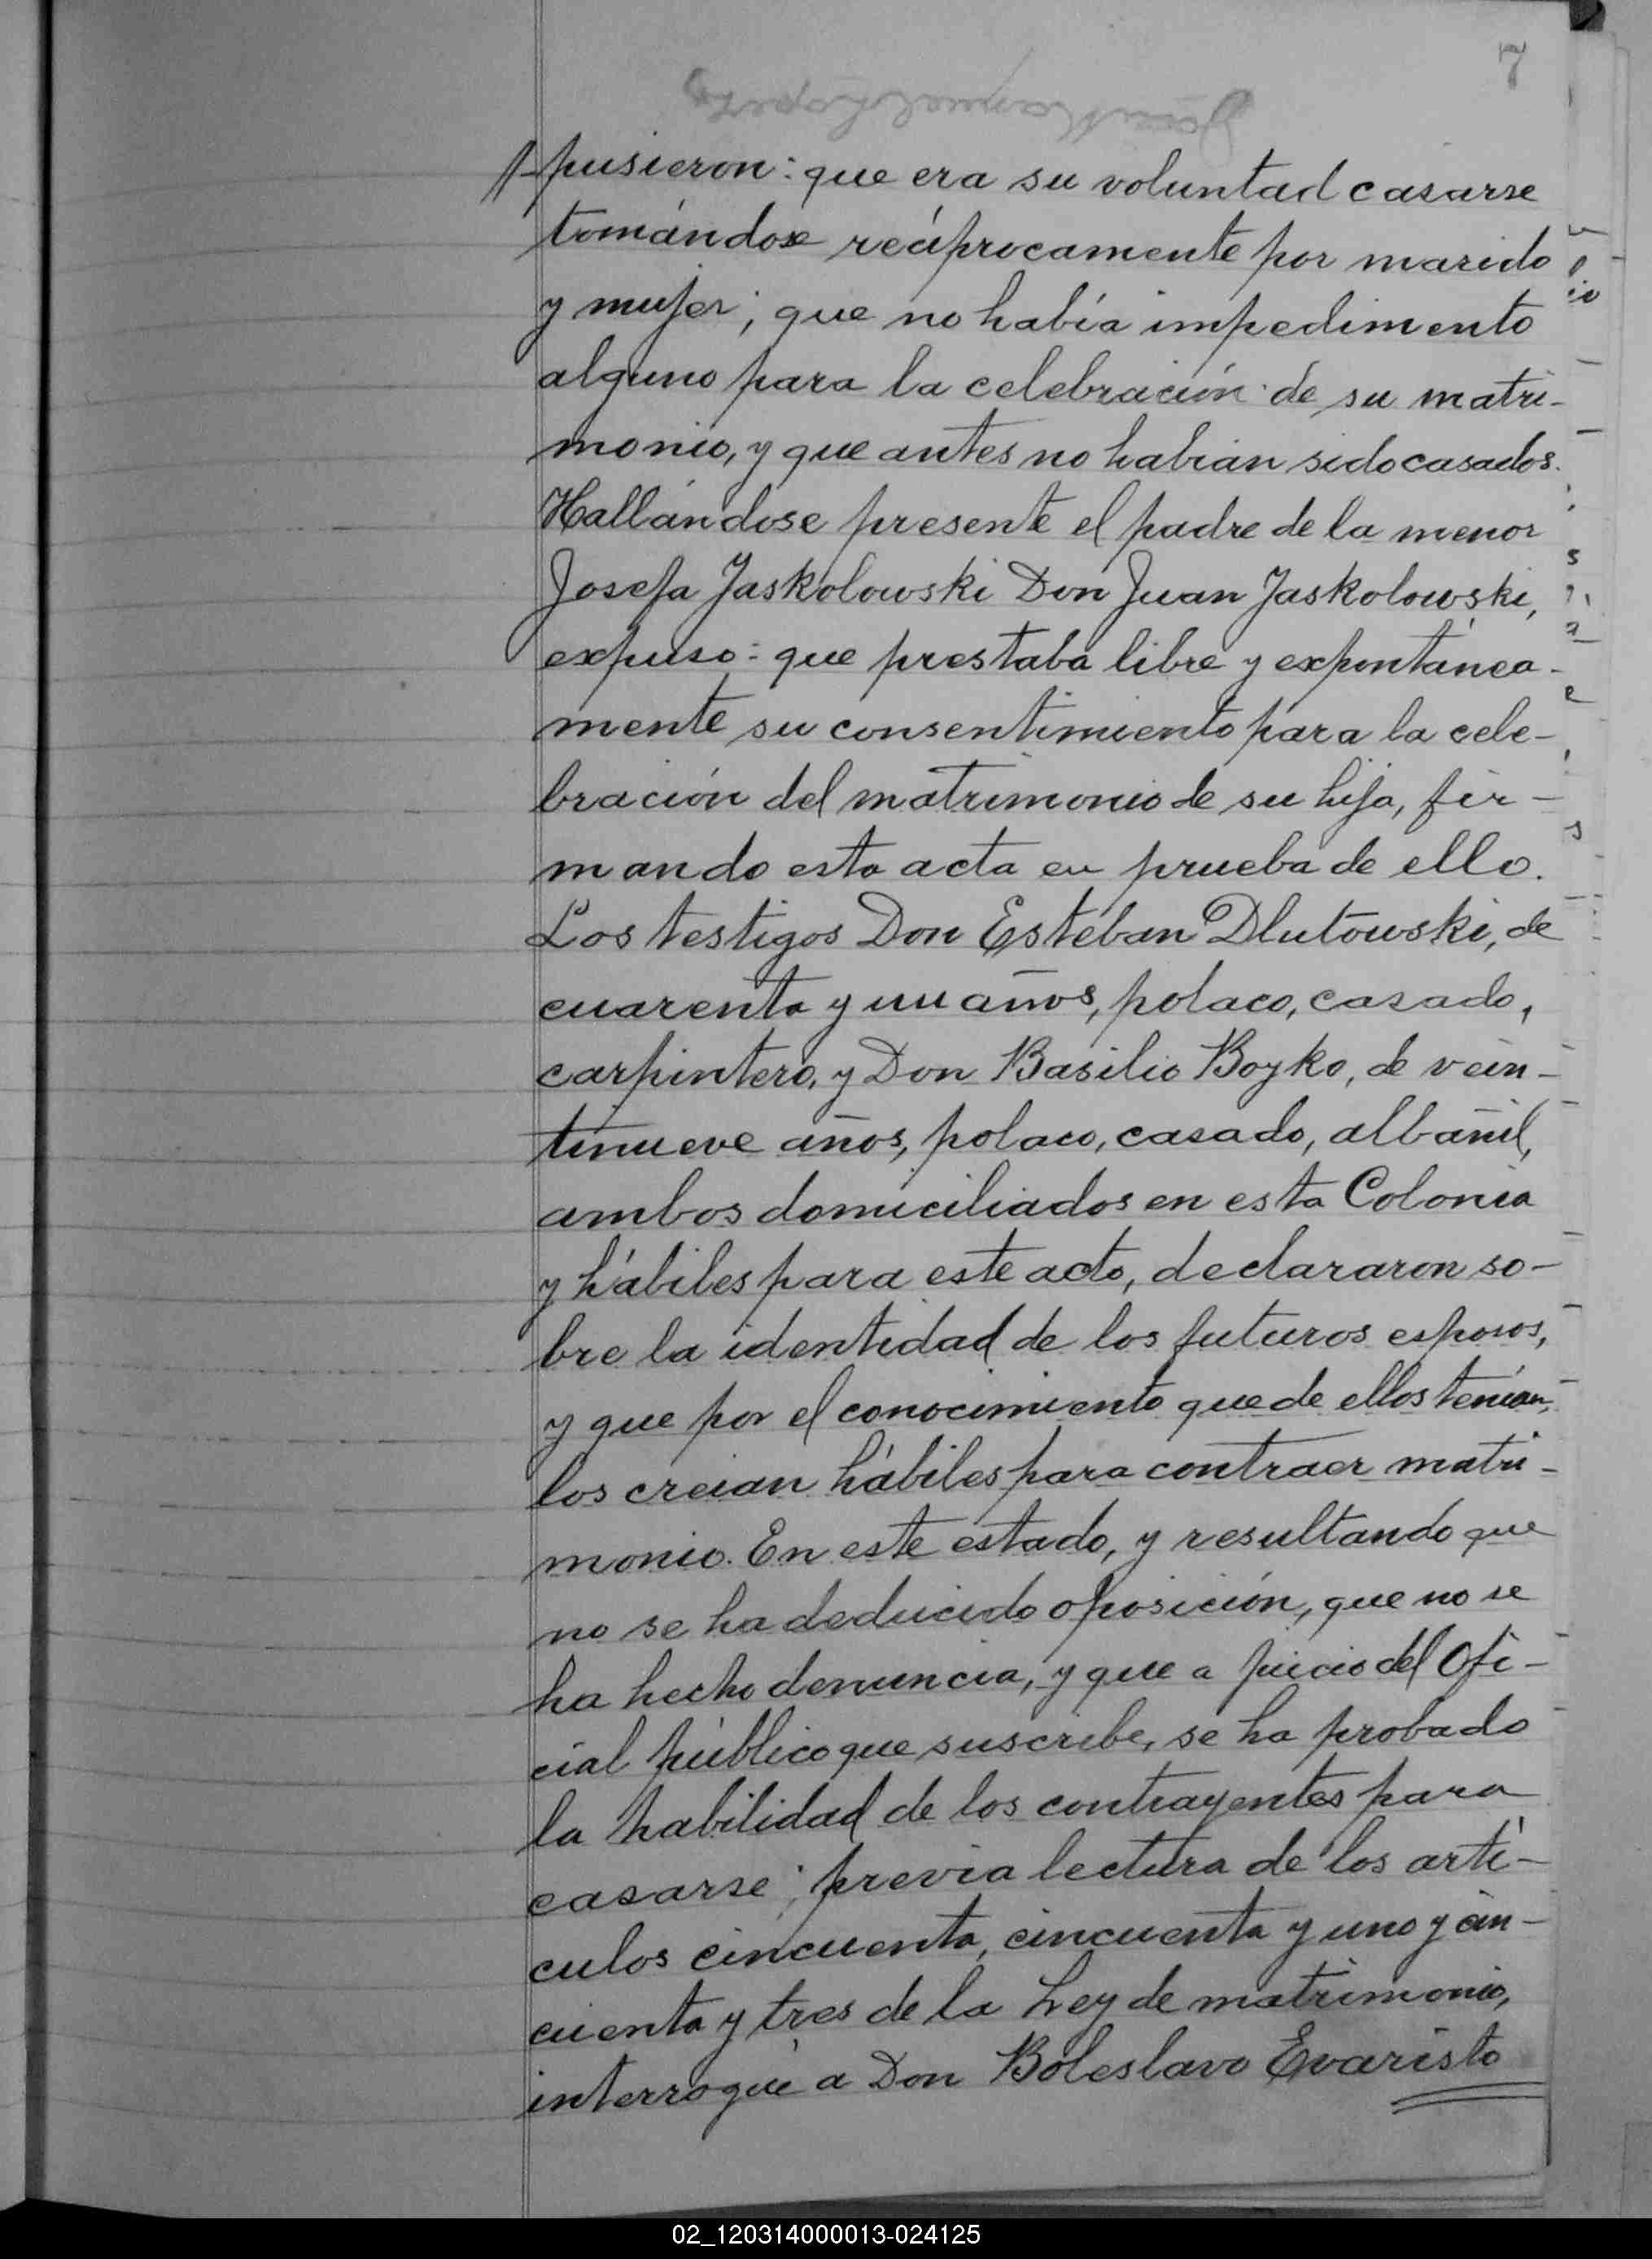 7
pusieron: que era su voluntad casarse
tomándose recíprocamente por marido
y mujer; que no había impedimento
alguno para la celebración de su matri-
monio, y que antes no habían sido casados.
Hallándose presente el padre de la menor
Josefa Jaskolowski Don Juan Jaskolowski,
expuso: que prestaba libre y expontánea-
mente su consentimiento para la cele-
bración del matrimonio de su hija, fir-
mando esta acta en prueba de ello.
Los testigos Don Estéban Dlutowski, de
cuarenta y un años, polaco, casado,
carpintero, y Don Basilio Boyko, de vein-
tinueve años, polaco, casado, albañil,
ambos domiciliados en esta Colonia
y hábiles para este acto, declararon so-
bre la identidad de los futuros esposos,
y que por el conocimiento que de ellos tenían,
los creian hábiles para contraer matri-
monio. En este estado, y resultando que
no se ha deducido oposición, que no se
ha hecho denuncia, y que a juicio del Ofi-
cial público que suscribe, se ha probado
la habilidad de los contrayentes para
casarse; previa lectura de los artí-
culos cincuenta, cincuenta y uno y cin-
cuenta y tres de la Ley de matrimonio,
interrogué a Don Boleslavo Evaristo
02_120314000013-024125